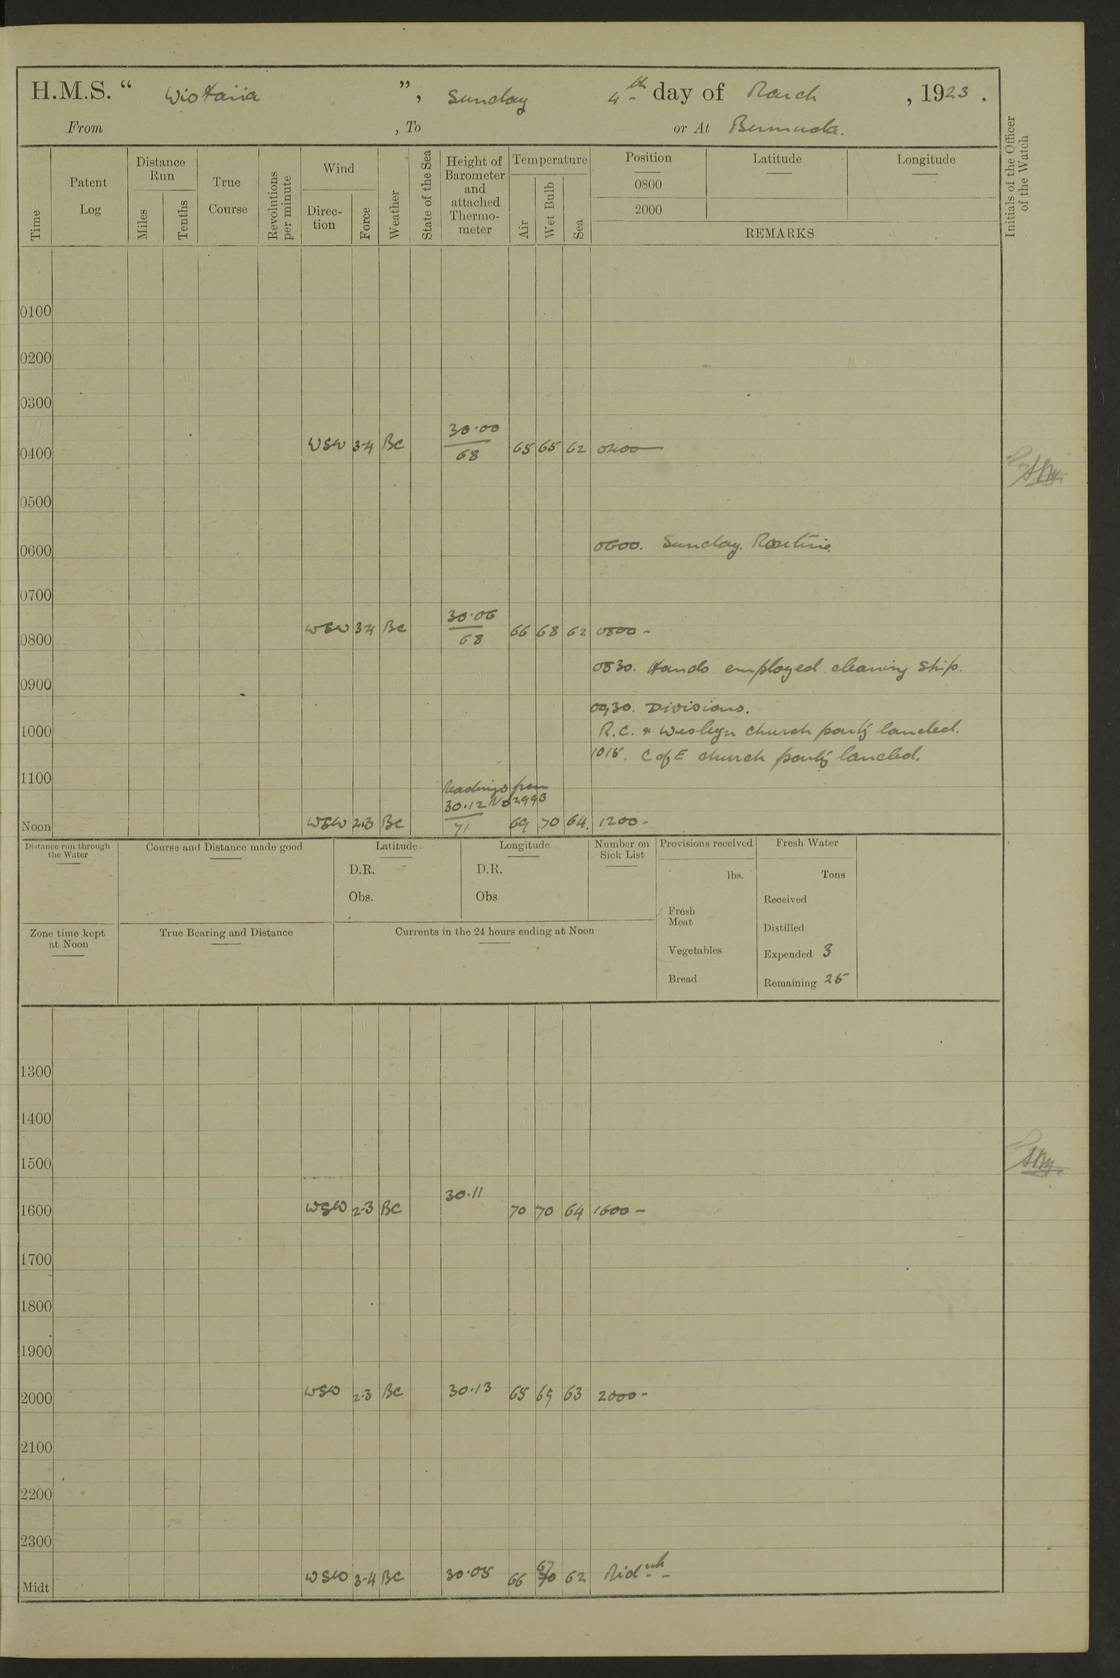 H.M.S. “ Wistaria ”, Sunday 4th day of March, 1923.
From , To or At Bermuda.
Time
Patent Log
Distance Run
Miles
Tenths
True Course
Revolutions per minute
Wind
Direc-tion
Force
Weather
State of the Sea
Height of Barometer and attached Thermo-meter
Temperature
Air
Wet Bulb
Sea
Position
0800
2000
Latitude
Longitude
REMARKS
Initials of the Officer of the Watch
0100
0200
0300
0400 WSW 3-4 BC 30.00/68 65 65 62 0400
0500
0600 0600. Sunday. Routine.
0700
0800 WSW 3-4 BC 30.06/68 66 68 62 0800 -
0830. Hands employed cleaning Ship.
0900
0930. Divisions.
1000 R.C. & Wesleyn church party landed.
1015. C of E church party landed.
1100
Readings from
No 2993
Noon WSW 2.3 BC 30.12/71 69 70 64. 1200 -
Distance run through the Water
Course and Distance made good
Latitude
D.R.
Obs.
Longitude
D.R.
Obs
Number on Sick List
Provisions received
lbs.
Fresh Meat
Vegetables
Bread
Fresh Water
Tons
Received
Distilled
Expended 3
Remaining 25
Zone time kept at Noon
True Bearing and Distance
Currents in the 24 hours ending at Noon
1300
1400
1500
1600 WSW 2-3 BC 30.11 70 70 64 1600 -
1700
1800
1900
2000 WSW 2.3 BC 30.13 65 69 63 2000 -
2100
2200
2300
Midt WSW 3-4 BC 30.08 66 67 70 62 Midnt -